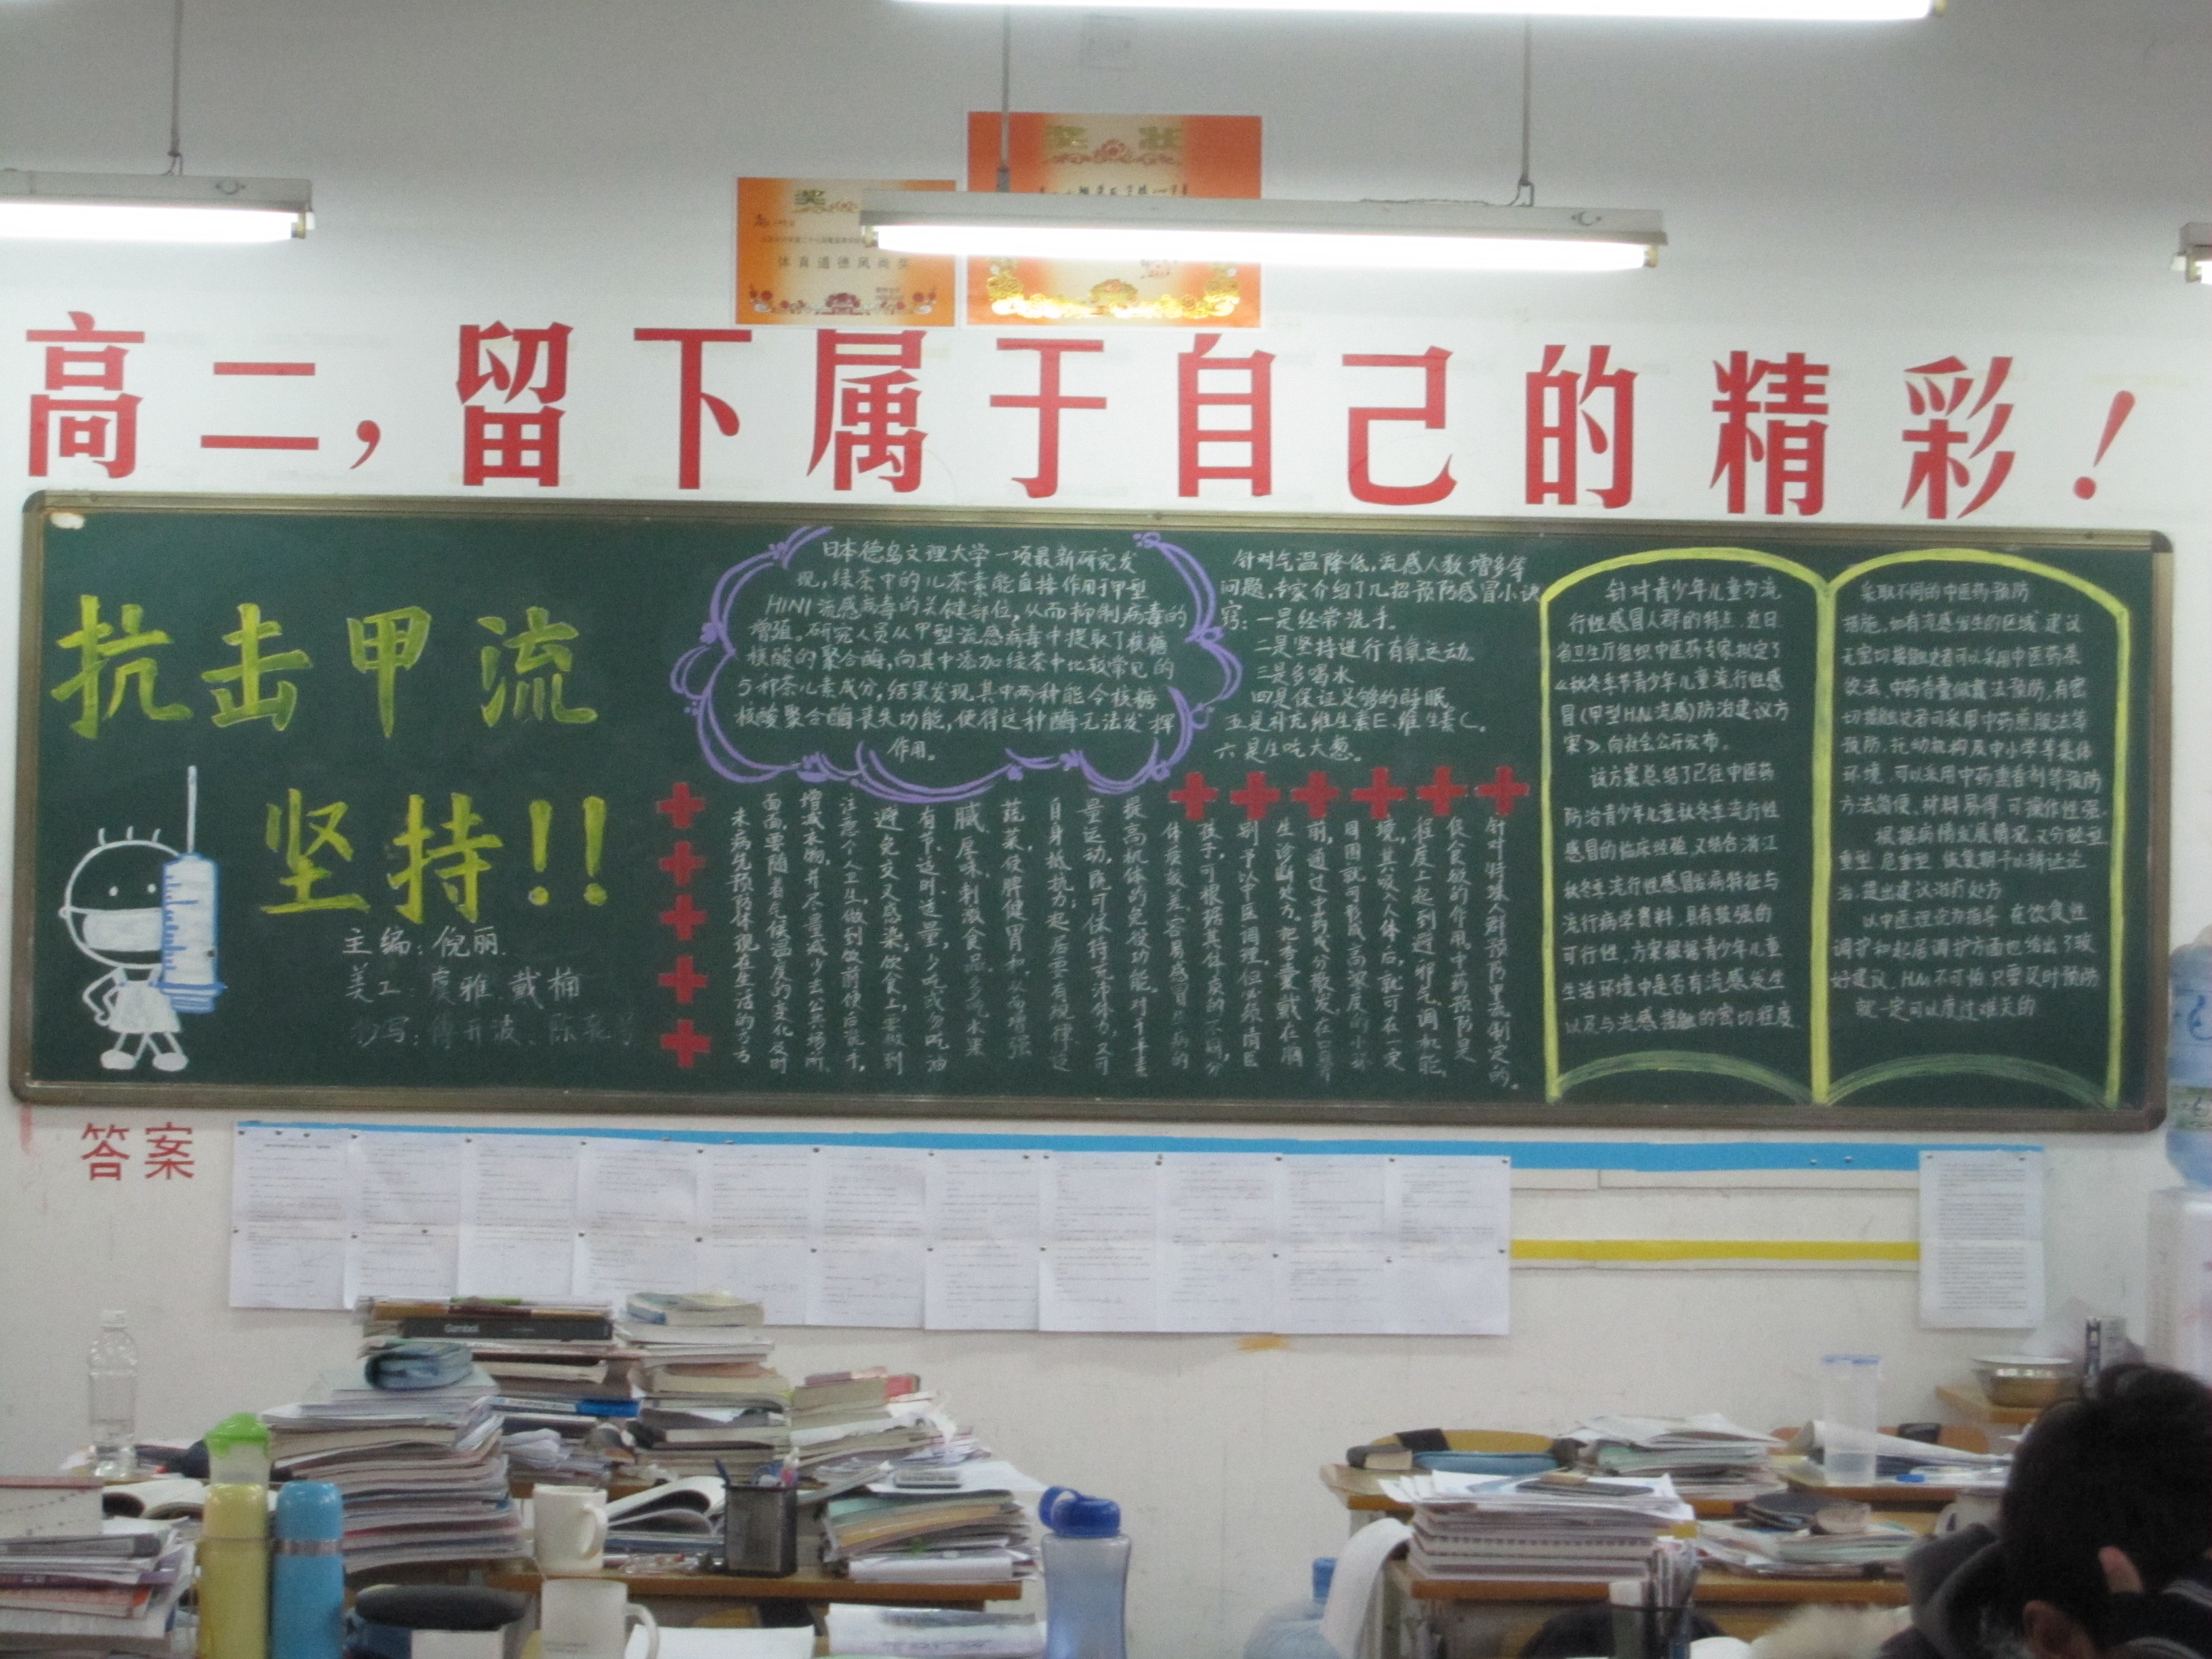 奖状
奖
体育道德风尚奖
高二,留下属于自己的精彩!
抗击甲流
坚持!!
主编:倪丽
美工:虞雅、戴楠
日本德岛文理大学一项最新研究发
现,绿茶中的儿茶素能直接作用于甲型
H1N1流感病毒的关键部位,从而抑制病毒的
增殖。研究人员从甲型流感病毒中提取了核糖
核酸的聚合酶,向其中添加绿茶中比较常见的
5种茶儿素成分,结果发现其中两种能令核糖
核酸聚合酶丧失功能,使得这种酶无法发挥
作用。
针对气温降低,流感人数增多等
问题,专家介绍了几招预防感冒小诀
窍:一是经常洗手。
二是坚持进行有氧运动。
三是多喝水
四是保证足够的睡眠。
五是补充维生素E、维生素C。
六是生吃大葱。
针对特殊人群预防里去制定的。
促食欲的作用。中药预防是
程度上起到避邪气、调机能,
境,其吸入人体后,就可在一定
周围就可形成高浓度的小环
前,通过中药成分散发,在口鼻
生诊断处方,把香囊戴在胸
别予以中医调理。但必须由医
孩子,可根据其体质的不同,分
体质较差容易感冒生病的
提高机体的免疫功能。对于平素
量运动,既可保持充沛体力,又可
自身抵抗力;起居要有规律,适
蔬菜,使脾健胃和,从而增强
腻、厚味、刺激食品,多吃水果
有节、适时、适量,少吃或勿吃油
避免交叉感染;饮食上,要做到
注意个人卫生,做到饭前便后洗手,
增减衣物,并尽量减少去公共场所,
面面,要随着气候温度的变化及时
未病先预防体现在生活的方方
针对青少年儿童为流
行性感冒人群的特点,近日
省卫生厅组织中医药专家拟定了
《秋冬季节青少年儿童流行性感
冒(甲型H1N1流感)防治建议方
案》,向社会公开发布。
该方案总结了已往中医药
防治青少年儿童秋冬季流行性
感冒的临床经验,又结合浙江
秋冬季流行性感冒发病特征与
流行病学资料,具有较强的
可行性。方案根据青少年儿童
生活环境中是否有流感发生
以及与流感接触的密切程度
采取不同的中医药预防
措施。如有流感发生的区域,建议
无密切接触史者可以采用中医药茶
饮法、中药香囊佩戴法预防,有密
切接触史者可采用中药煎服法等
预防,托幼机构及中小学等集体
环境,可以采用中药熏香剂等预防
方法简便、材料易得、可操作性强。
根据病情发展情况,又分轻型
重型、危重型、恢复期予以辨证论
治,提出建议治疗处方
以中医理论为指导,在饮食性
调护和起居调护方面也给出了较
好建议,H1N1不可怕,只要及时预防
就一定可以度过难关的
答案